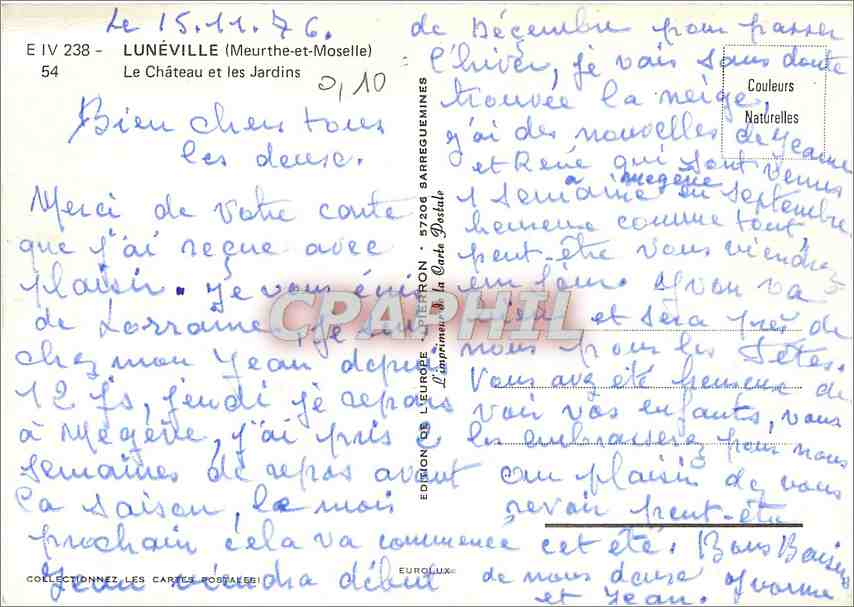 Le 15.11.76.
E IV 238 - LUNÉVILLE (Meurthe-et-Moselle)
54 Le Château et les Jardins
0,10
Bien chers tous
les deux.
Merci de votre carte
que j'ai reçue avec
plaisir. Je vous écris
de Lorraine, je suis
chez mon Jean depuis
12 js, jeudi je repars
à Megève, j'ai pris 2
semaines de repos avant
la saison, le mois
prochain cela va commencé
Jean viendra début
COLLECTIONNEZ LES CARTES POSTALES!
EDITION DE L'EUROPE • PIERRON • 57206 SARREGUEMINES
L'imprimeur de la Carte Postale
EUROLUX
CPAPHIL
Couleurs
Naturelles
de Décembre pour passer
l'hiver, je vais sans doute
trouvée la neige,
j'ai des nouvelles de Jeanne
et René qui sont venus
à Megève
1 semaine en septembre
heureux comme tout
peut-être vous viendrez
Yvon va
bien et sera près de
nous pour les fêtes.
Vous avez été heureux de
voir vos enfants, vous
les embrasserez pour nous
au plaisir de vous
revoir peut-être
cet été. Bons Baisers
de nous deux Yvonne
et Jean.